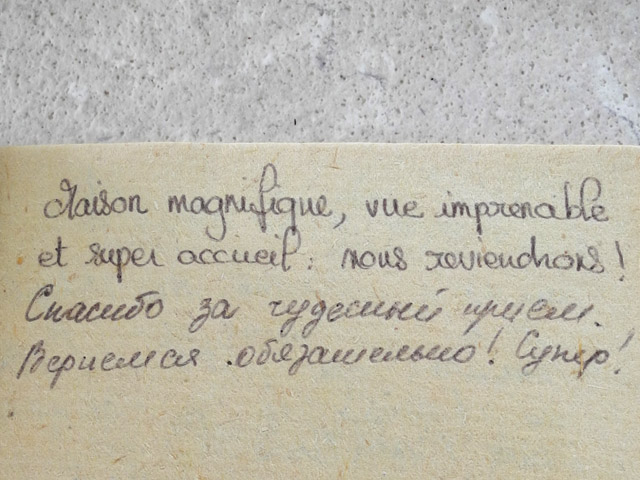 Maison magnifique, vue imprenable
et super accueil : nous reviendrons !
Спасибо за чудесный приём.
Вернёмся обязательно! Супер!